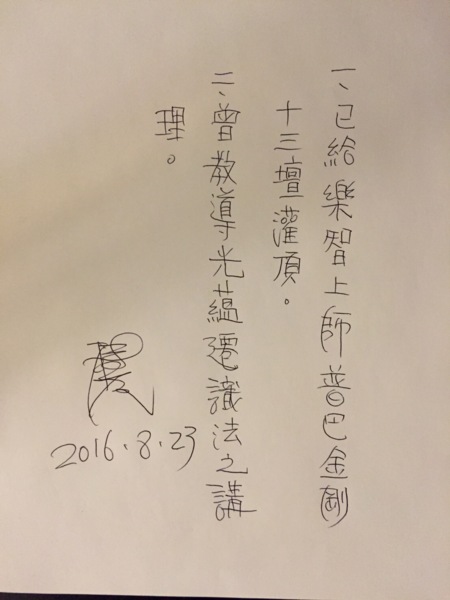 一、已給樂智上師普巴金剛
十三壇灌頂。
二、曾教導光蘊遷識法之講
理。
2016.8.23